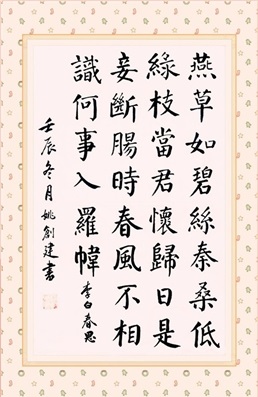 燕草如碧絲秦桑低
綠枝當君懷歸日是
妾斷腸時春風不相
識何事入羅幃
李白春思
壬辰冬月姚創建書